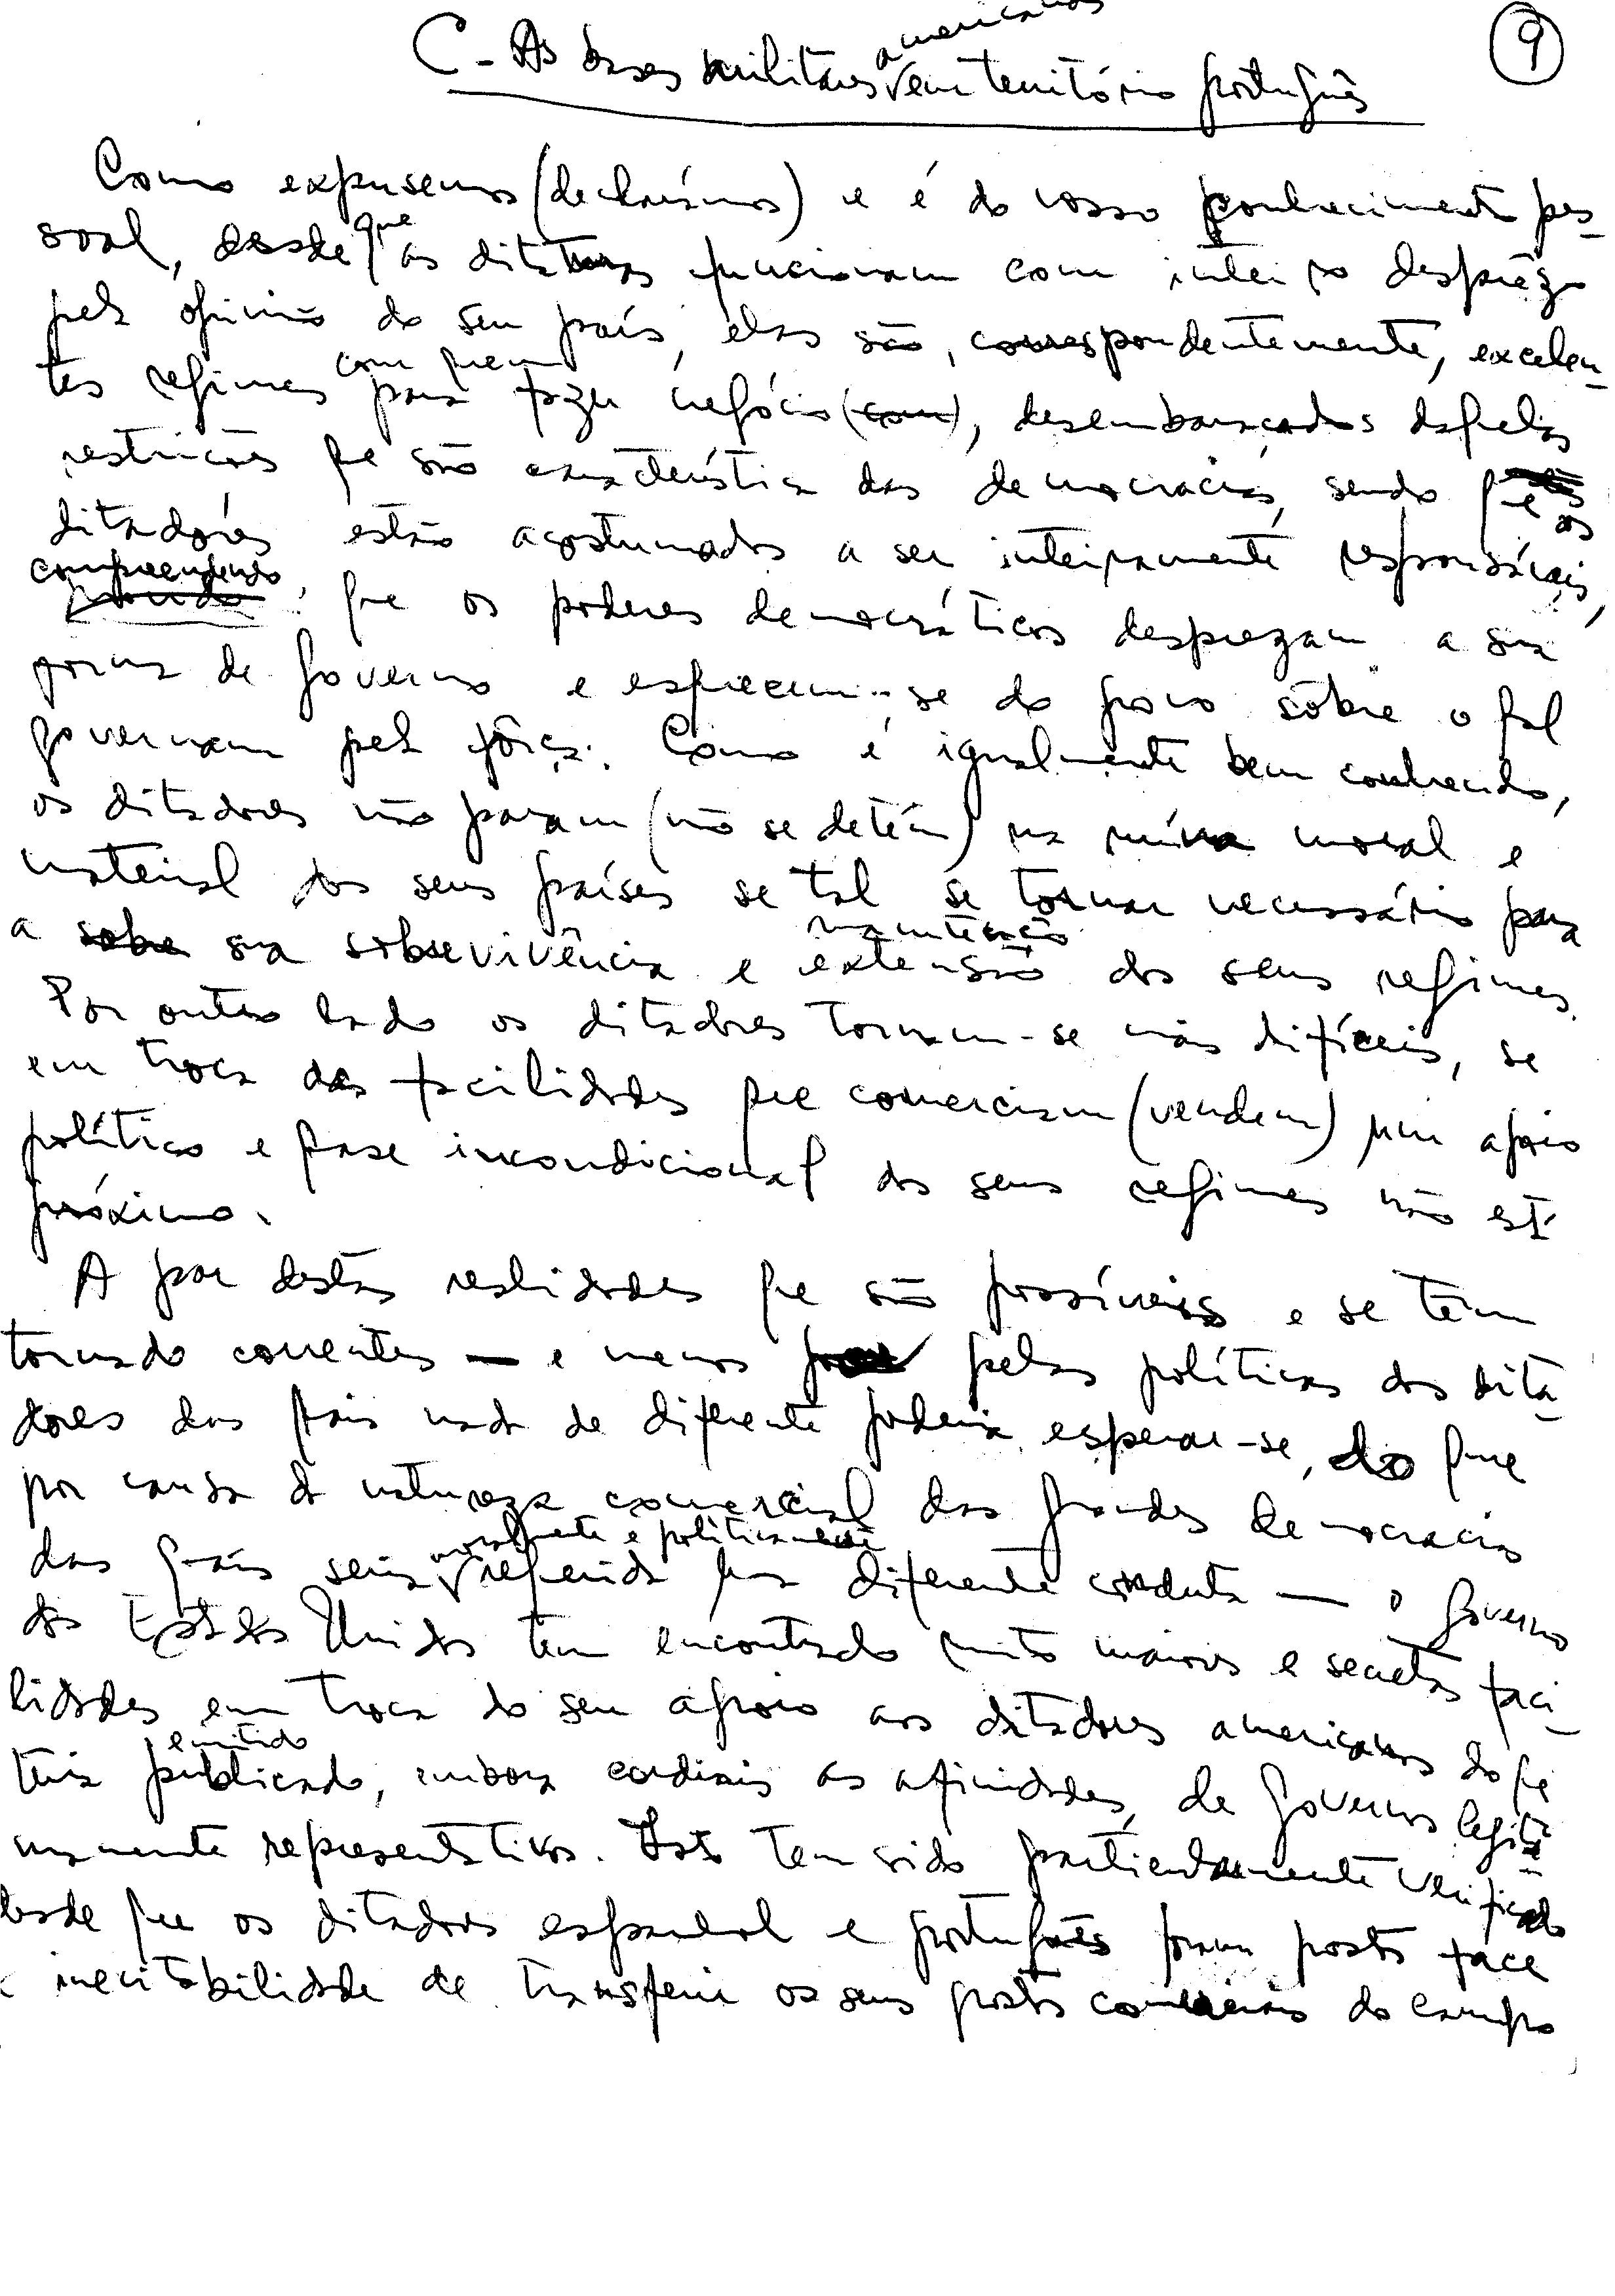 C - As bases militares americanas em território português
9
Como expusemos (declarámos) e é do vosso conhecimento pes-
soal, desde que as ditaduras funcionam com inteiro desprêzo
pela opinião do seu país, elas são, correspondentemente, excelen-
tes regimes com quem para fazer negócio (com), desembaraçados daquelas
restrições que são característica das democracias, sendo que os
ditadores estão acostumados a ser inteiramente responsáveis,
compreendendo que os poderes democráticos desprezam a sua
forma de governo e esquecem-se do povo sôbre o qal
governam pela fôrça. Como é igualmente bem conhecido,
os ditadores não param (não se detêm) na ruína moral e
material dos seus países se tal se tornar necessário para
a sobre sua sobrevivência e extensão manutenção dos seus regimes.
Por outro lado os ditadores tornam-se mais difíceis, se
em troca das facilidades que comerciam (vendem) um apoio
político e quase incondicional dos seus regimes não está
próximo.
A par destas realidades que são possíveis e se têm
tornado correntes — e menos pelas políticas dos dita-
dores das quais nada de diferente poderia esperar-se, do que
por causa da natureza comercial das grandes democracias
das quais seria moralmente e politicamente referida uma diferente conduta — o Governo
dos Estados Unidos tem encontrado muito maiores e secretas faci-
lidades em troca do seu apoio aos ditadores americanos do que
teria publicado, emitido embora cordiais as afinidades, de governos legiti-
mamente representativos. Isto tem sido particularmente verificado
desde que os ditadores espanhol e português foram postos face
à inevitabilidade de transferir os seus postos comerciais do campo